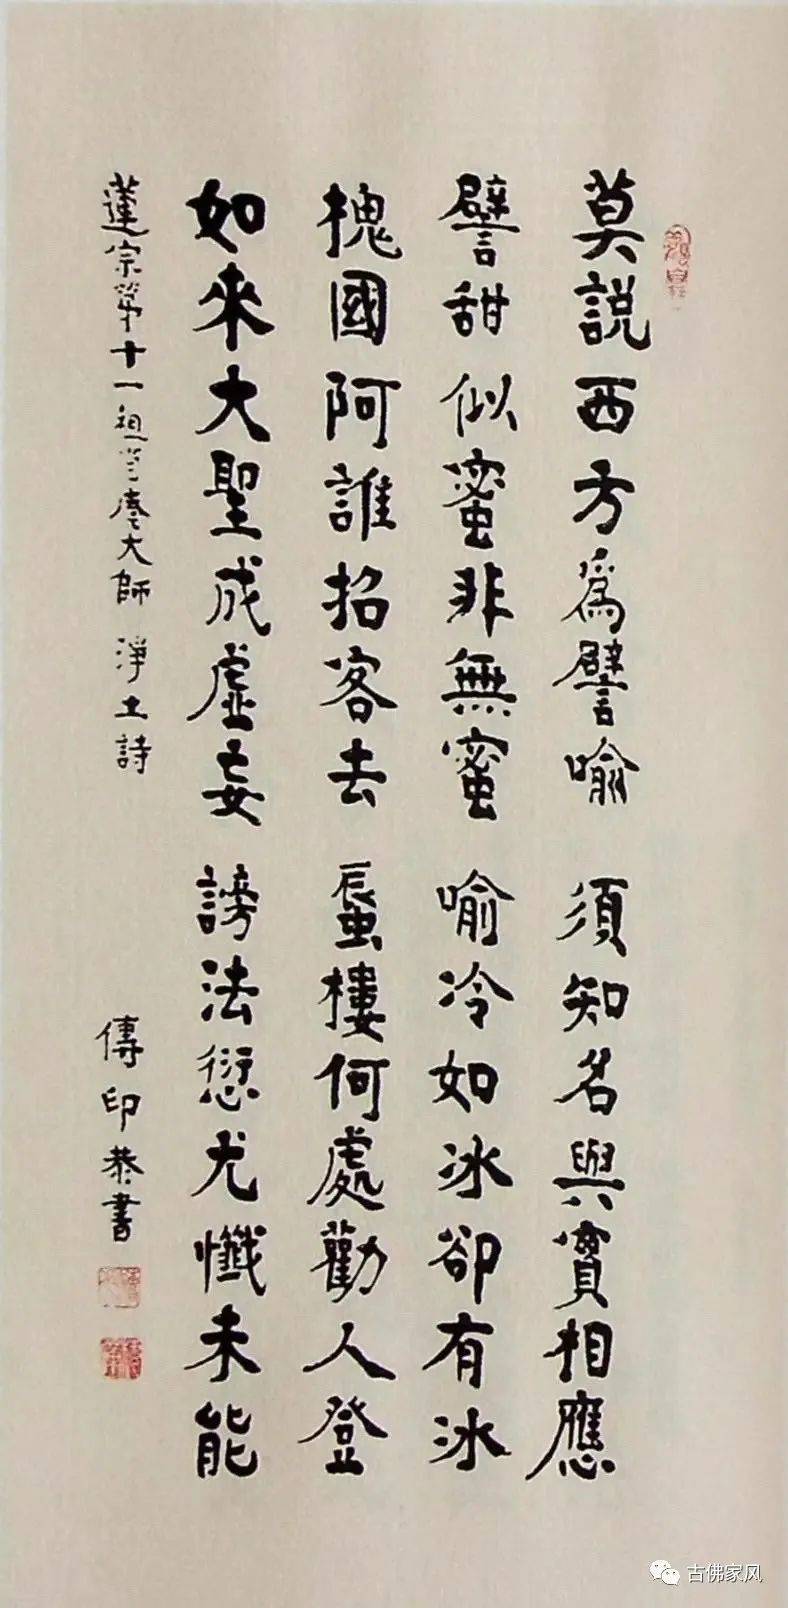 莫説西方爲譬喻 須知名與實相應
譬甜似蜜非無蜜 喻冷如冰卻有冰
槐國阿誰招客去 蜃樓何處勸人登
如來大聖成虛妄 謗法愆尤懺未能
蓮宗第十一祖省庵大師 淨土詩 傳印恭書
古佛家风